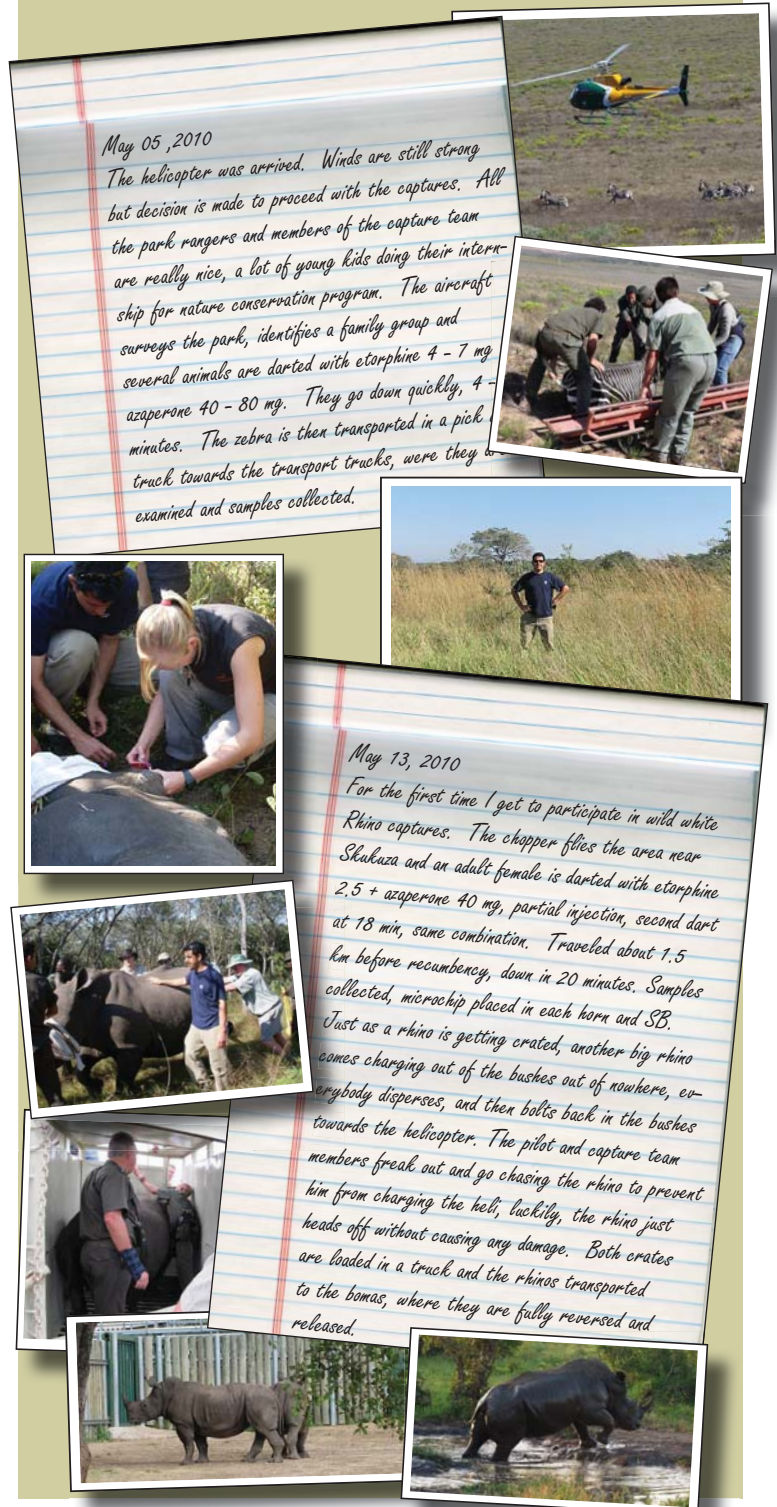 May 05 ,2010
The helicopter was arrived. Winds are still strong
but decision is made to proceed with the captures. All
the park rangers and members of the capture team
are really nice, a lot of young kids doing their intern-
ship for nature conservation program. The aircraft
surveys the park, identifies a family group and
several animals are darted with etorphine 4 - 7 mg
azaperone 40 - 80 mg. They go down quickly, 4 -
minutes. The zebra is then transported in a pick
truck towards the transport trucks, were they
examined and samples collected.
May 13, 2010
For the first time I get to participate in wild white
Rhino captures. The chopper flies the area near
Skukuza and an adult female is darted with etorphine
2.5 + azaperone 40 mg, partial injection, second dart
at 18 min, same combination. Traveled about 1.5
km before recumbency, down in 20 minutes. Samples
collected, microchip placed in each horn and SB.
Just as a rhino is getting crated, another big rhino
comes charging out of the bushes out of nowhere, ev-
erybody disperses, and then bolts back in the bushes
towards the helicopter. The pilot and capture team
members freak out and go chasing the rhino to prevent
him from charging the heli, luckily, the rhino just
heads off without causing any damage. Both crates
are loaded in a truck and the rhinos transported
to the bomas, where they are fully reversed and
released.